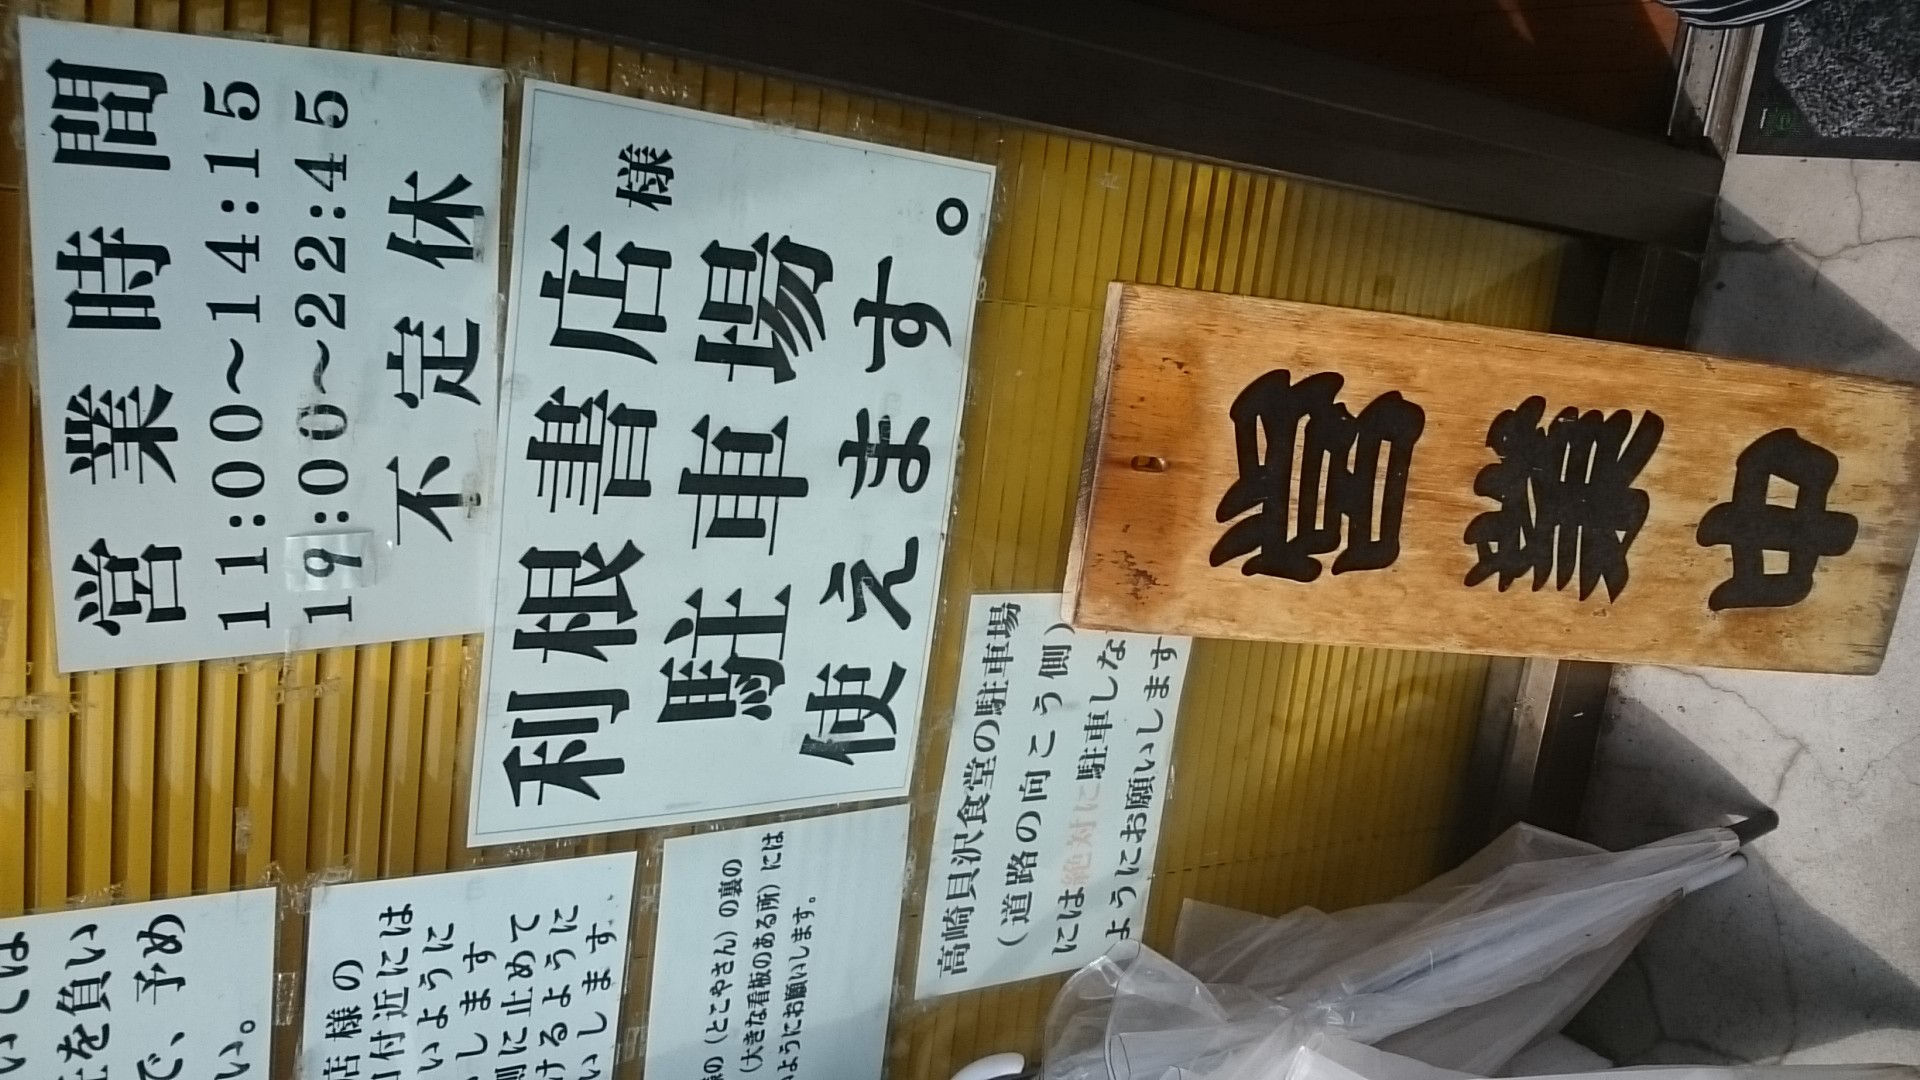 営業時間
11:00~14:15
19:00~22:45
不定休
利根書店様
駐車場
使えます。
営業中
高崎貝沢食堂の駐車場
(道路の向こう側)
には絶対に駐車しな
ようにお願いします
(とこやさん)の裏の
(大きな看板のある所)には
ようにお願いします。
店様の
付近には
いように
します
側に止めて
けるように
いします.
いしては
を負い
で、予め
い。